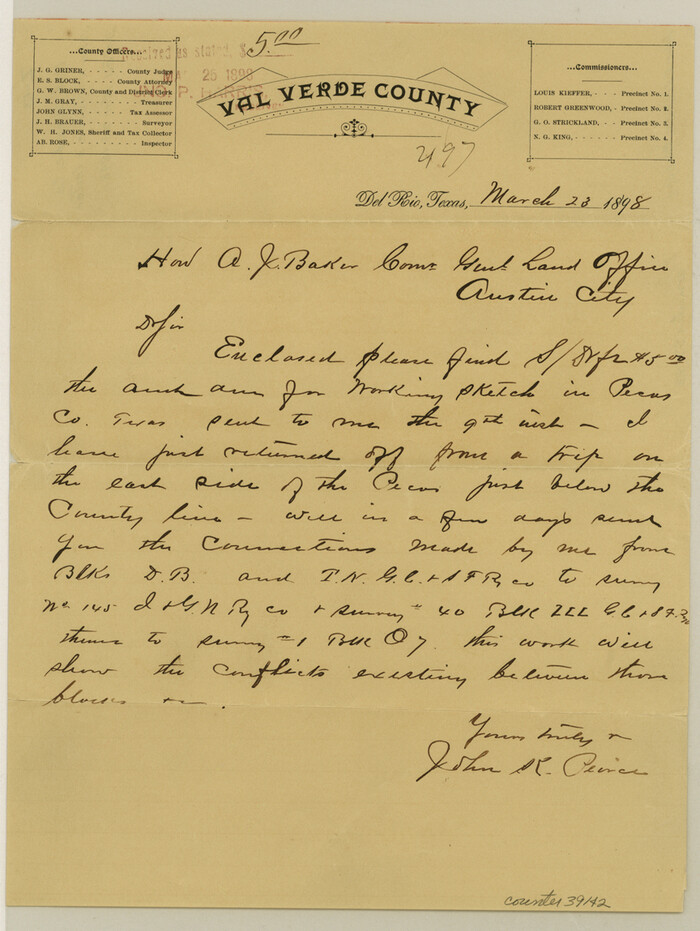 ...County Officers...
J. G. GRINER, - - - - - County Judge
E. S. BLOCK, - - - - - County Attorney
G. W. BROWN, County and District Clerk
J. M. GRAY, - - - - - Treasurer
JOHN GLYNN, - - - - - Tax Assessor
J. H. BRAUER, - - - - - Surveyor
W. H. JONES, Sheriff and Tax Collector
AB. ROSE, - - - - - Inspector
Received as stated, $ 5.00
25 1898
VAL VERDE COUNTY
...Commissioners...
LOUIS KIEFFER, - - Precinct No. 1.
ROBERT GREENWOOD, - Precinct No. 2.
G. O. STRICKLAND, - - Precinct No. 3.
N. G. KING, - - - - Precinct No. 4.
497
Del Rio, Texas, March 23 1898
Hon A. J. Baker Comr Genl Land Office
Austin City
Dr Sir
Enclosed please find $5.00
the for Working Sketch in Pecos
Co. Texas sent to me the 9th inst - I
have just returned off from a trip on
the east side of the Pecos just below the
County line - will in a few days send
you the Connections made by me from
Blks D.B. and T.N. G.C. & S F Ry co to survey
No. 145 I & G. N Ry co & survey # 40 Blk LLL G.C & S F Ry
thence to survey # 1 Blk O 7. this work will
show the conflicts existing between those
blocks &c.
Yours truly &
John K. Peirce
counter 39142